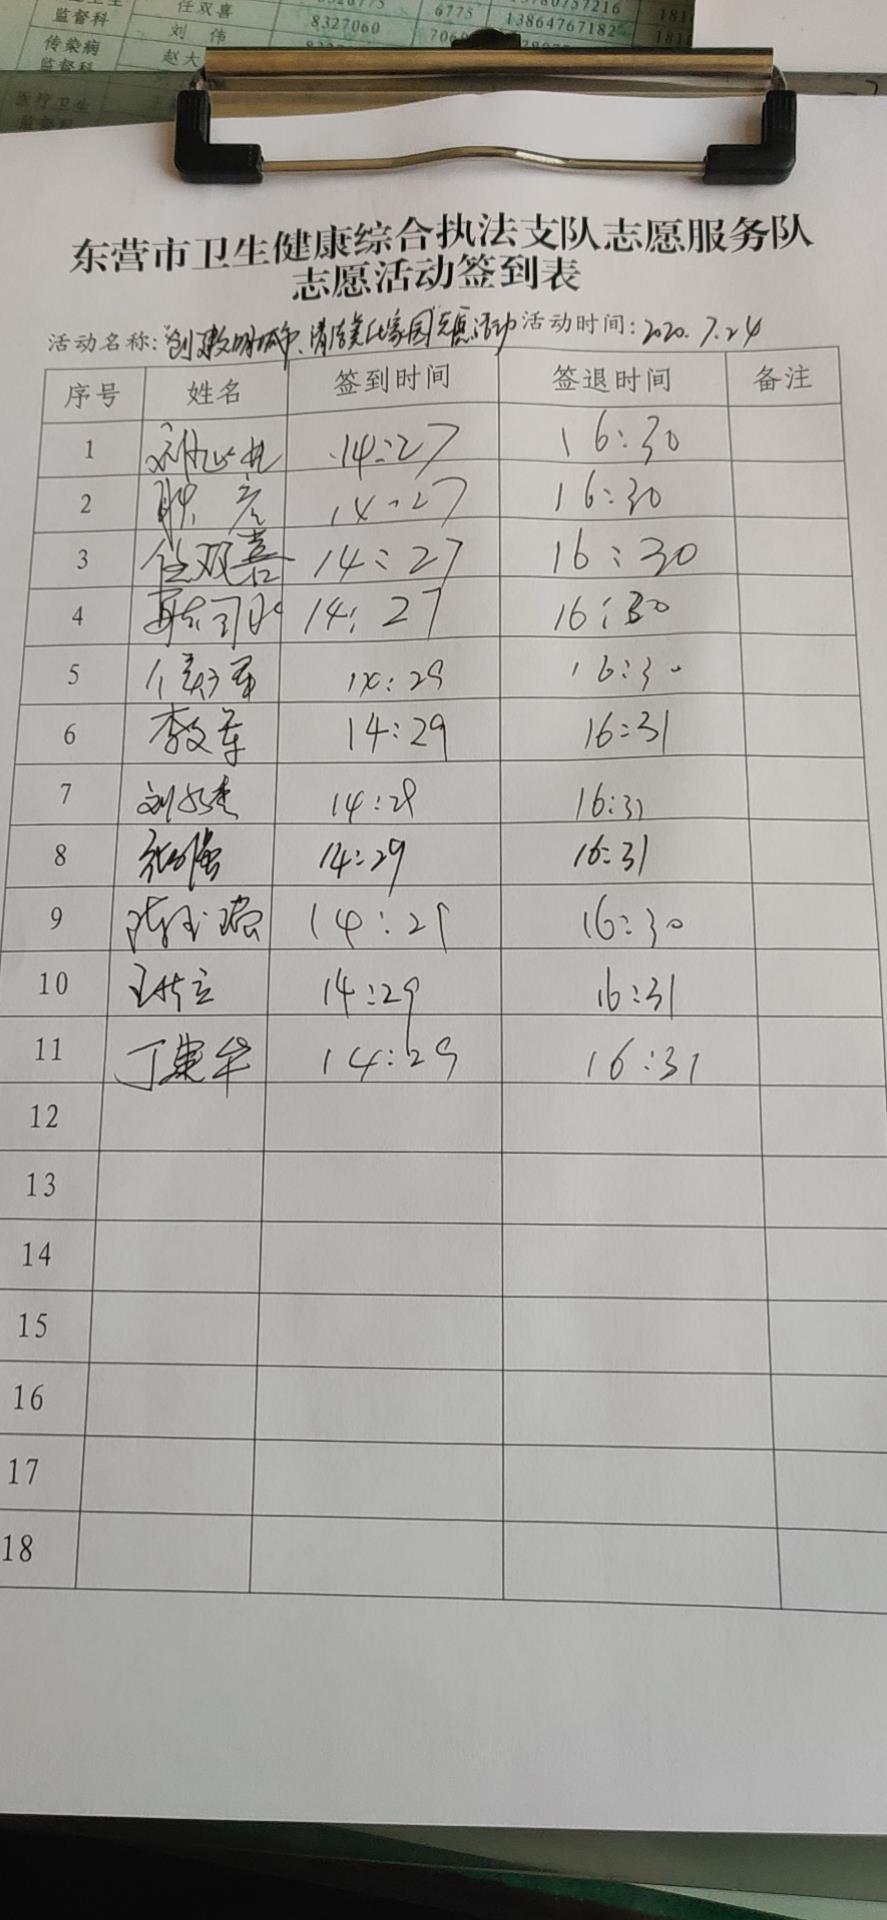 监督科 任双喜 6775 13780757216
刘 伟 8327060 7060 13864767182
传染病 赵大
监督科
医疗卫生
监督科
东营市卫生健康综合执法支队志愿服务队
志愿活动签到表
活动名称:"创建文明城市、清洁美化家园"志愿活动 活动时间:2020.7.24
序号 姓名 签到时间 签退时间 备注
1 14:27 16:30
2 14:27 16:30
3 任双喜 14:27 16:30
4 14:27 16:30
5 14:29 16:30
6 李文军 14:29 16:31
7 14:29 16:31
8 14:29 16:31
9 14:29 16:30
10 14:29 16:31
11 丁建华 14:29 16:31
12
13
14
15
16
17
18